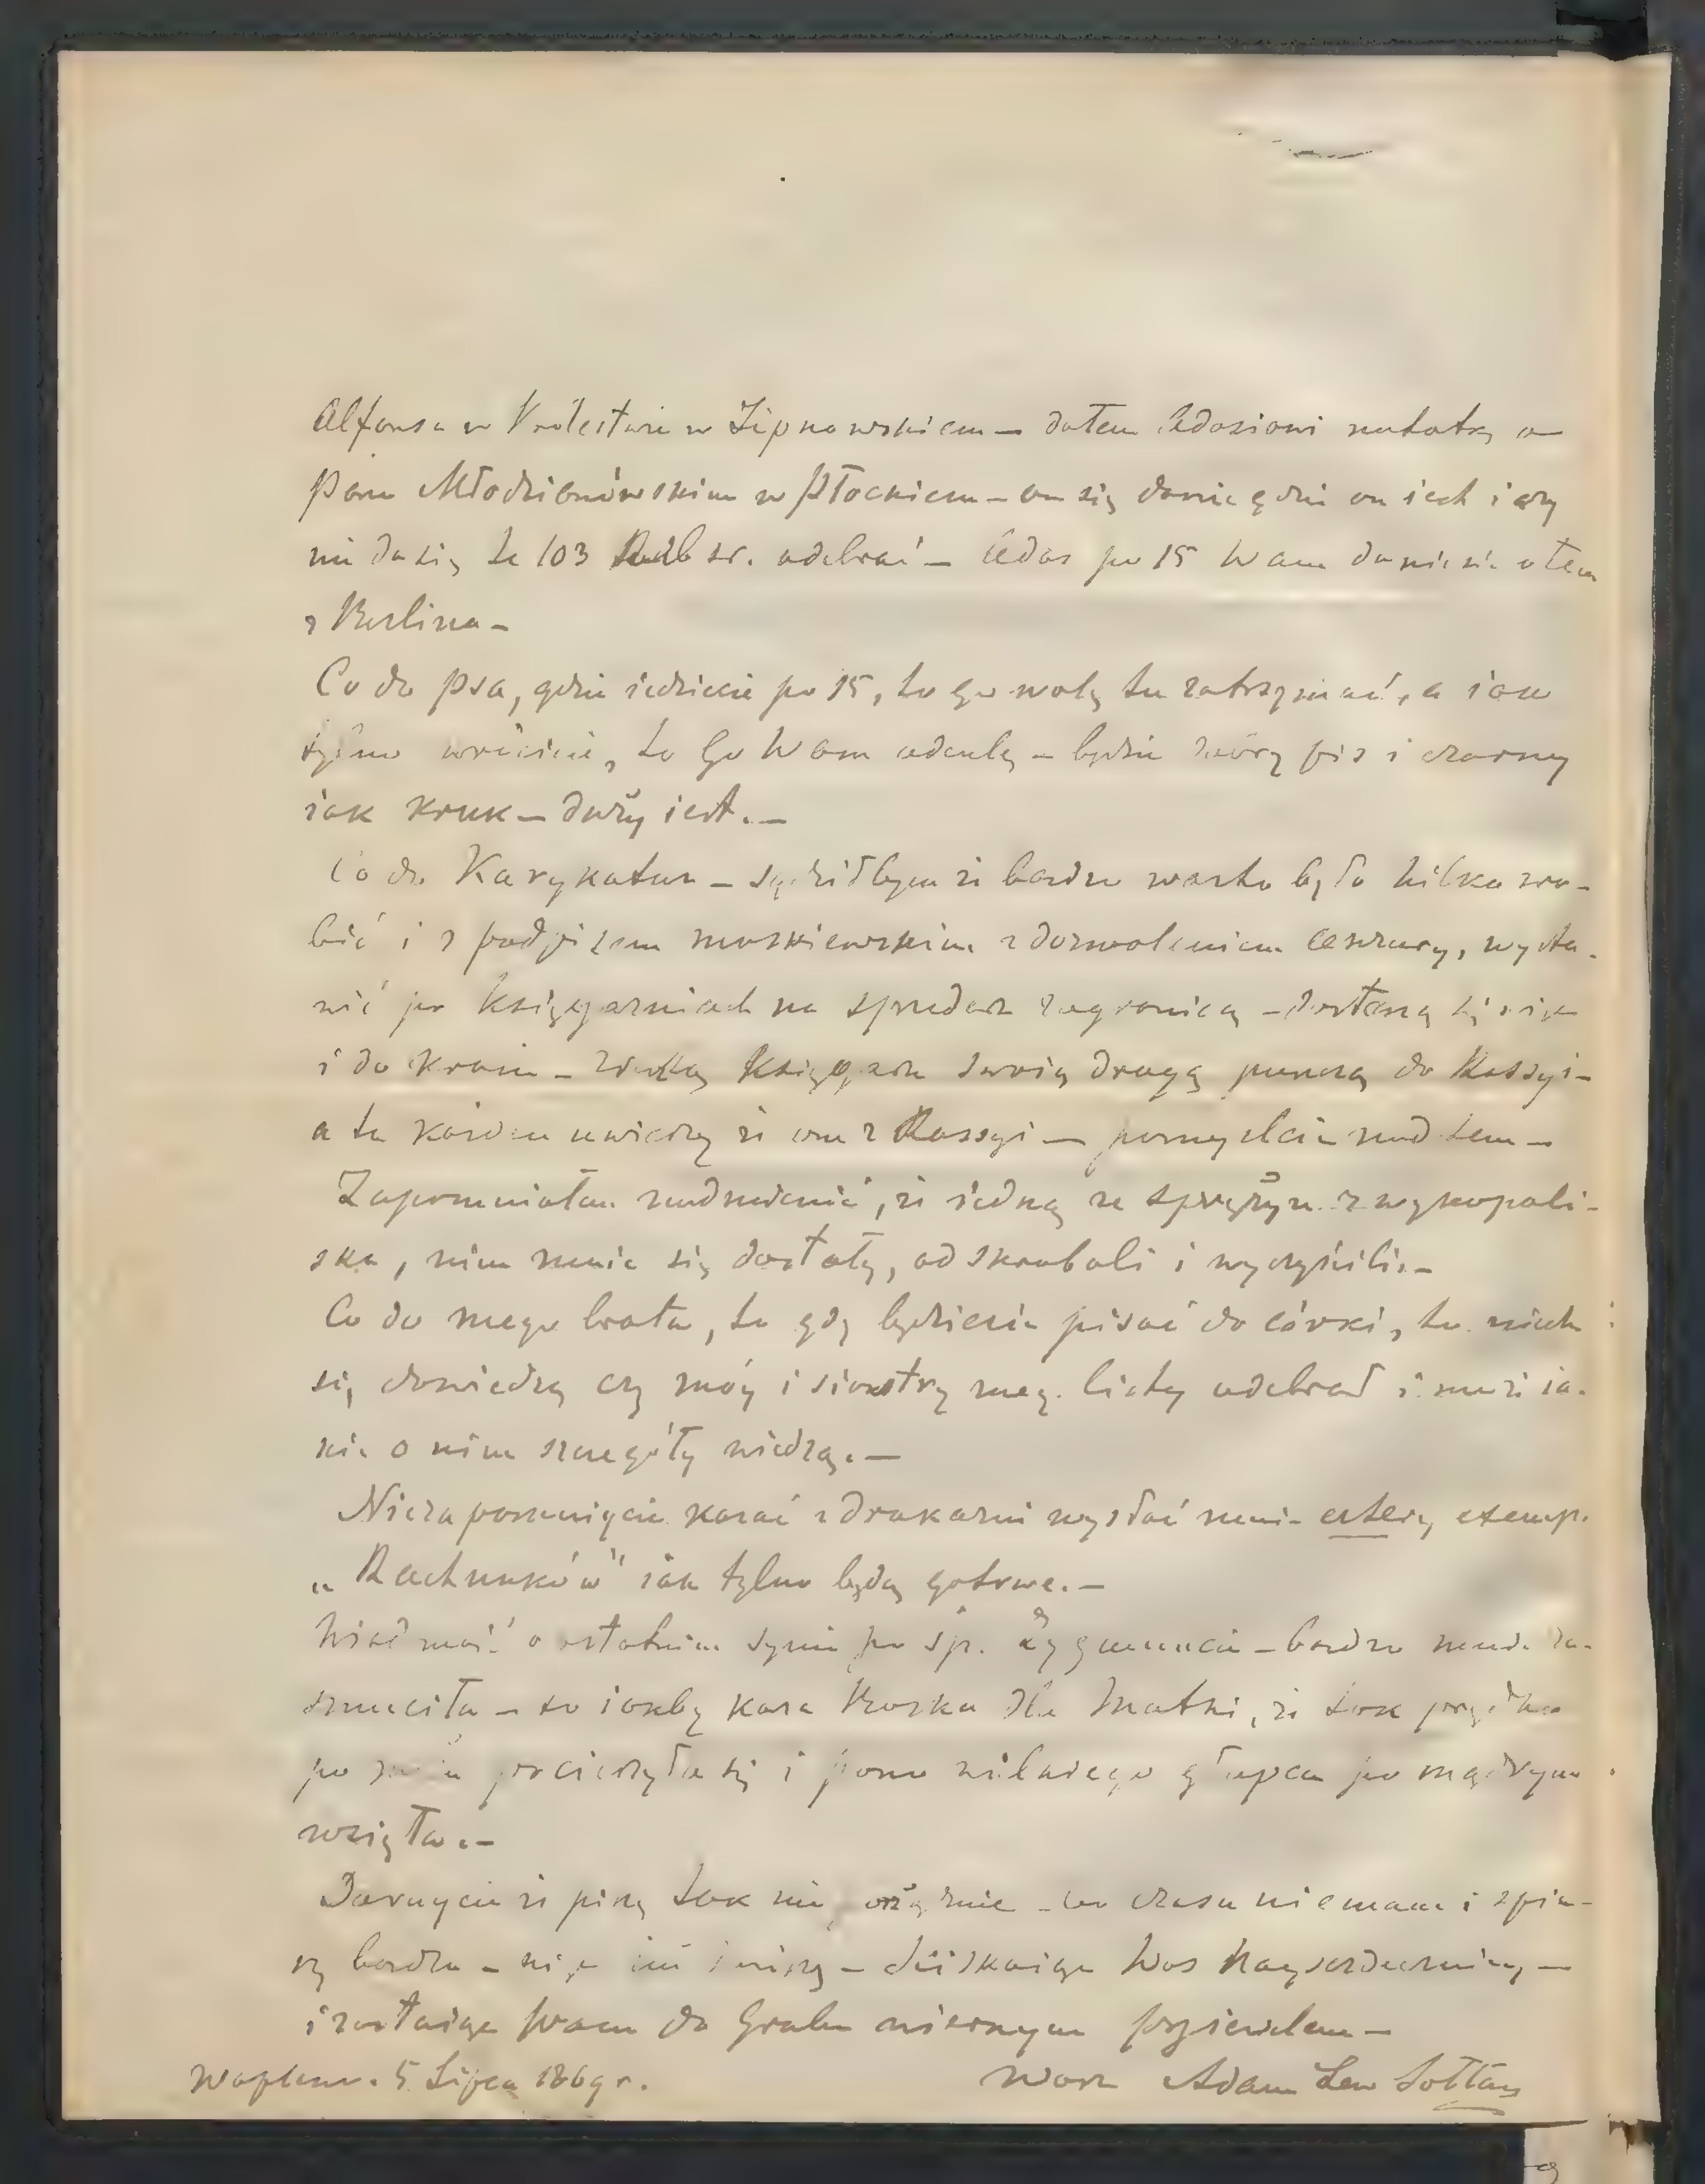 Alfonsa w Królestwie w Lipnowskiem — dałem Adasiowi notatkę o
Panu Młodzianowskim w Płockiem — on się dowie gdzie on iest i czy
nie da się te 103 Rub sr. odebrać — Adaś po 15 Wam doniesie o tem
z Berlina —
Co do psa, gdzie iedziecie po 15, to go wolę tu zatrzymać, a iak
tylko wrócicie, to Go Wam odeszlę — będzie pies i czarny
iak kruk — duży iest. —
Co do Karykatur — sądziłbym że bardzo warto było kilka zro-
bić i z podpisem moskiewskim z dozwoleniem Censury, wysta-
wić po księgarniach na sprzedaż zagranicą — dostaną się
i do kraiu — księgarz swoią drogą puszczą do Rossyi —
a tu każden uwierzy że one z Rossyi — pomyślcie nad tem —
Zapomniałem nadmienić, że iedną ze sprężyn z wykopali-
ska, nim mnie się dostały, odskrobali i wyczyścili. —
Co do mego brata, to gdy będziecie pisać do córki, to niech
się dowiedzą czy móy i siostry mey listy odebrał i może ia-
kie o nim szczegóły wiedzą. —
Niezapomnijcie kazać z drukarni wysłać mnie cztery exemp.
„Rachunków" iak tylko będą gotowe. —
Wiadomość o ostatnim synie po śp. Zygmuncie — bardzo mnie za-
smuciła — to iakby kara Bozka dla Matki, że tak prędko
po pocieszyła się i głupca po mądrym
wzięła. —
Darujcie że piszę tak nie — bo czasu niemam i spie-
szę bardzo — — ściskaiąc Was nayserdeczniey —
i zostaiąc Wam do Grobu wiernym przyjacielem —
Waplewo. 5 Lipca 1869 r. Wasz Adam Lew Sołtan